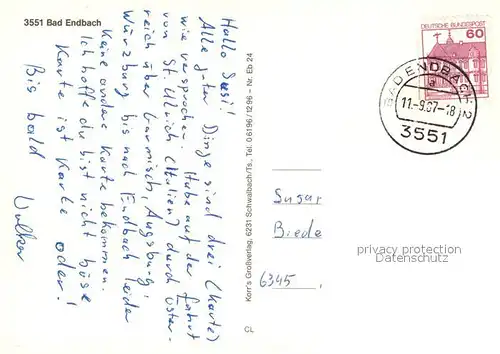 3551 Bad Endbach
Hallo Susi!
Alle guten Dinge sind drei (Karte)
wie versprochen. Habe auf der Fahrt
von St. Ulrich (Italien) durch Öster-
reich über Garmisch, Augsburg,
Würzburg bis nach Endbach leider
keine andere Karte bekommen.
Ich hoffe du bist nicht böse
Karte ist Karte oder!
Bis bald
Korr's Großverlag, 6231 Schwalbach/Ts., Tel. 06196/1296 – Nr. Eb 24
CL
DEUTSCHE BUNDESPOST
60
BAD ENDBACH 2
a
11.-9.87-18
3551
Susar
Biede
6345
privacy protection
Datenschutz